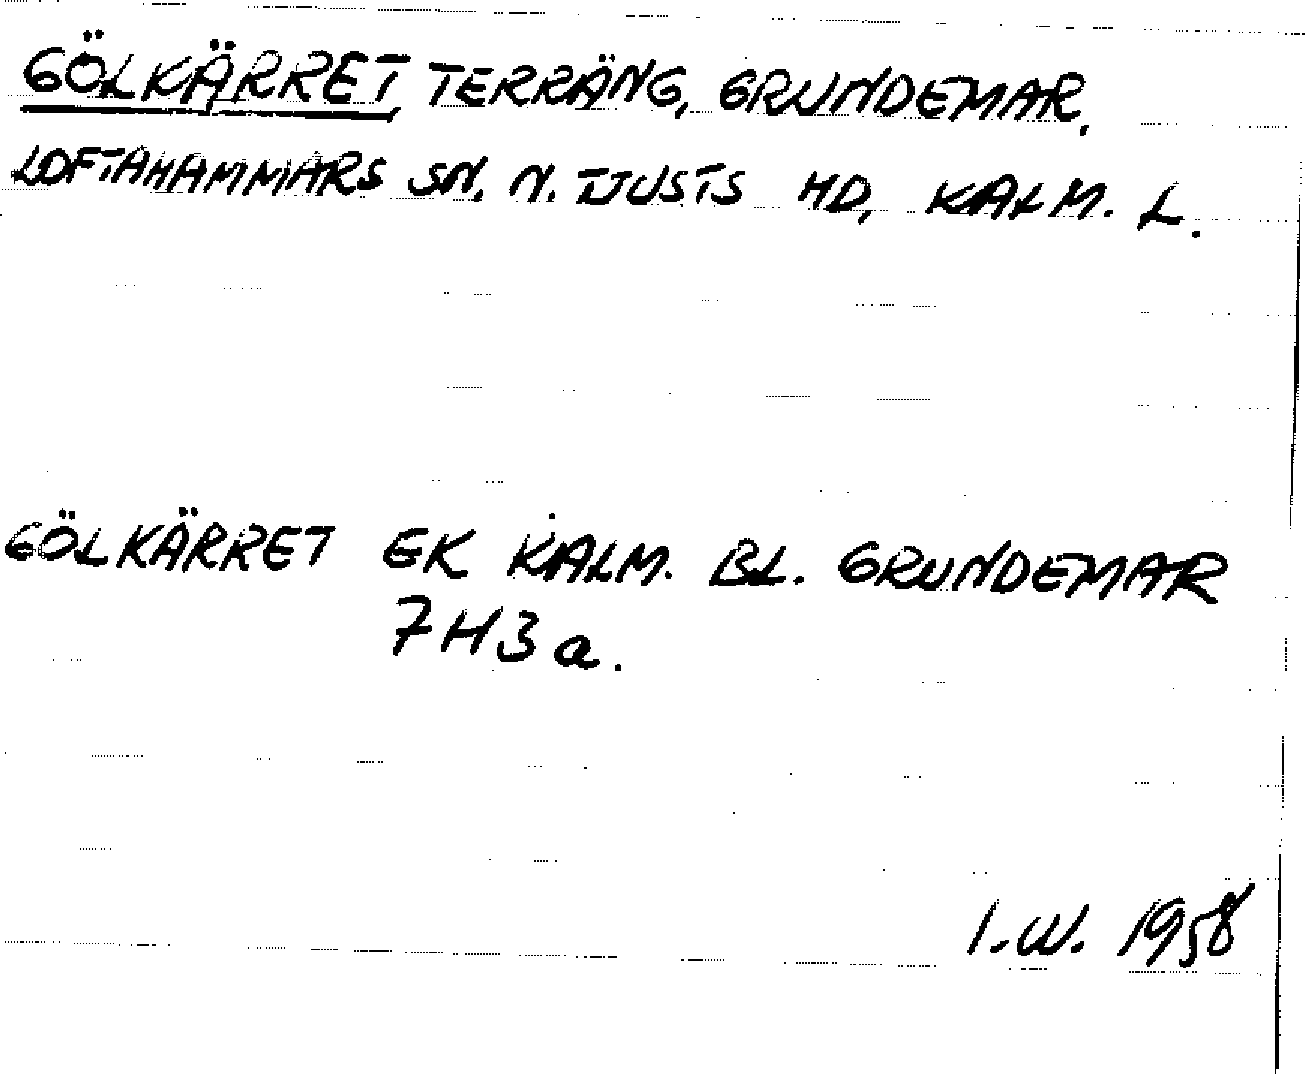 GÖLKÄRRET, TERRÄNG, GRUNDEMAR,
LOFTAHAMMARS SN, N. TJUSTS HD, KALM. L.
GÖLKÄRRET EK KALM. BL. GRUNDEMAR
7H3a.
I.W. 1958